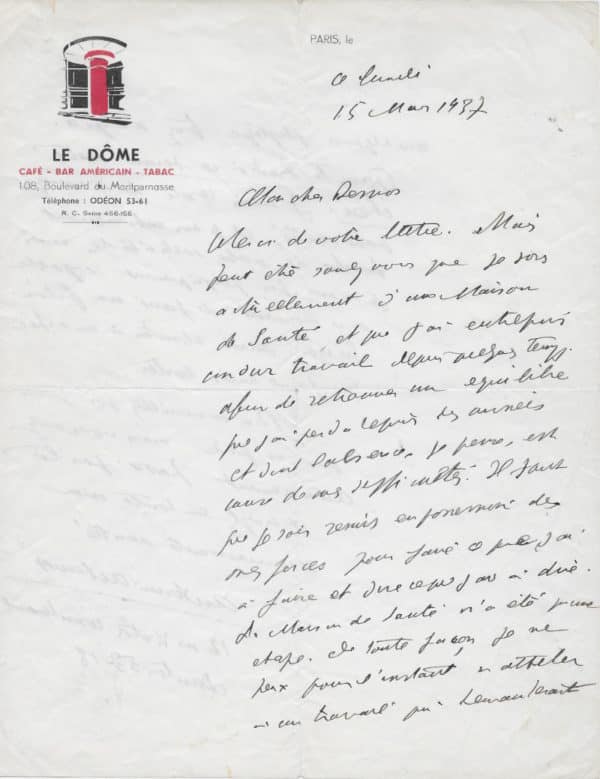 PARIS, le
ce lundi
15 Mars 1937
LE DÔME
CAFÉ - BAR AMÉRICAIN - TABAC
108, Boulevard du Montparnasse
Téléphone : ODÉON 53-61
R. C. Seine 456-155
Mon cher Desnos
Merci de votre lettre. Mais
peut être savez vous que je sors
actuellement d'une Maison
de Santé, et que j'ai entrepris
un dur travail depuis quelque temps
afin de retrouver un équilibre
que j'ai perdu depuis des années
et dont l'absence, je pense, est
cause de mes difficultés. Il faut
que je sois remis en possession de
mes forces pour faire ce que j'ai
à faire et dire ce que j'ai à dire.
La Maison de Santé n'a été qu'une
étape. De toute façon, je ne
peux pour l'instant m'atteler
à un travail qui demanderait